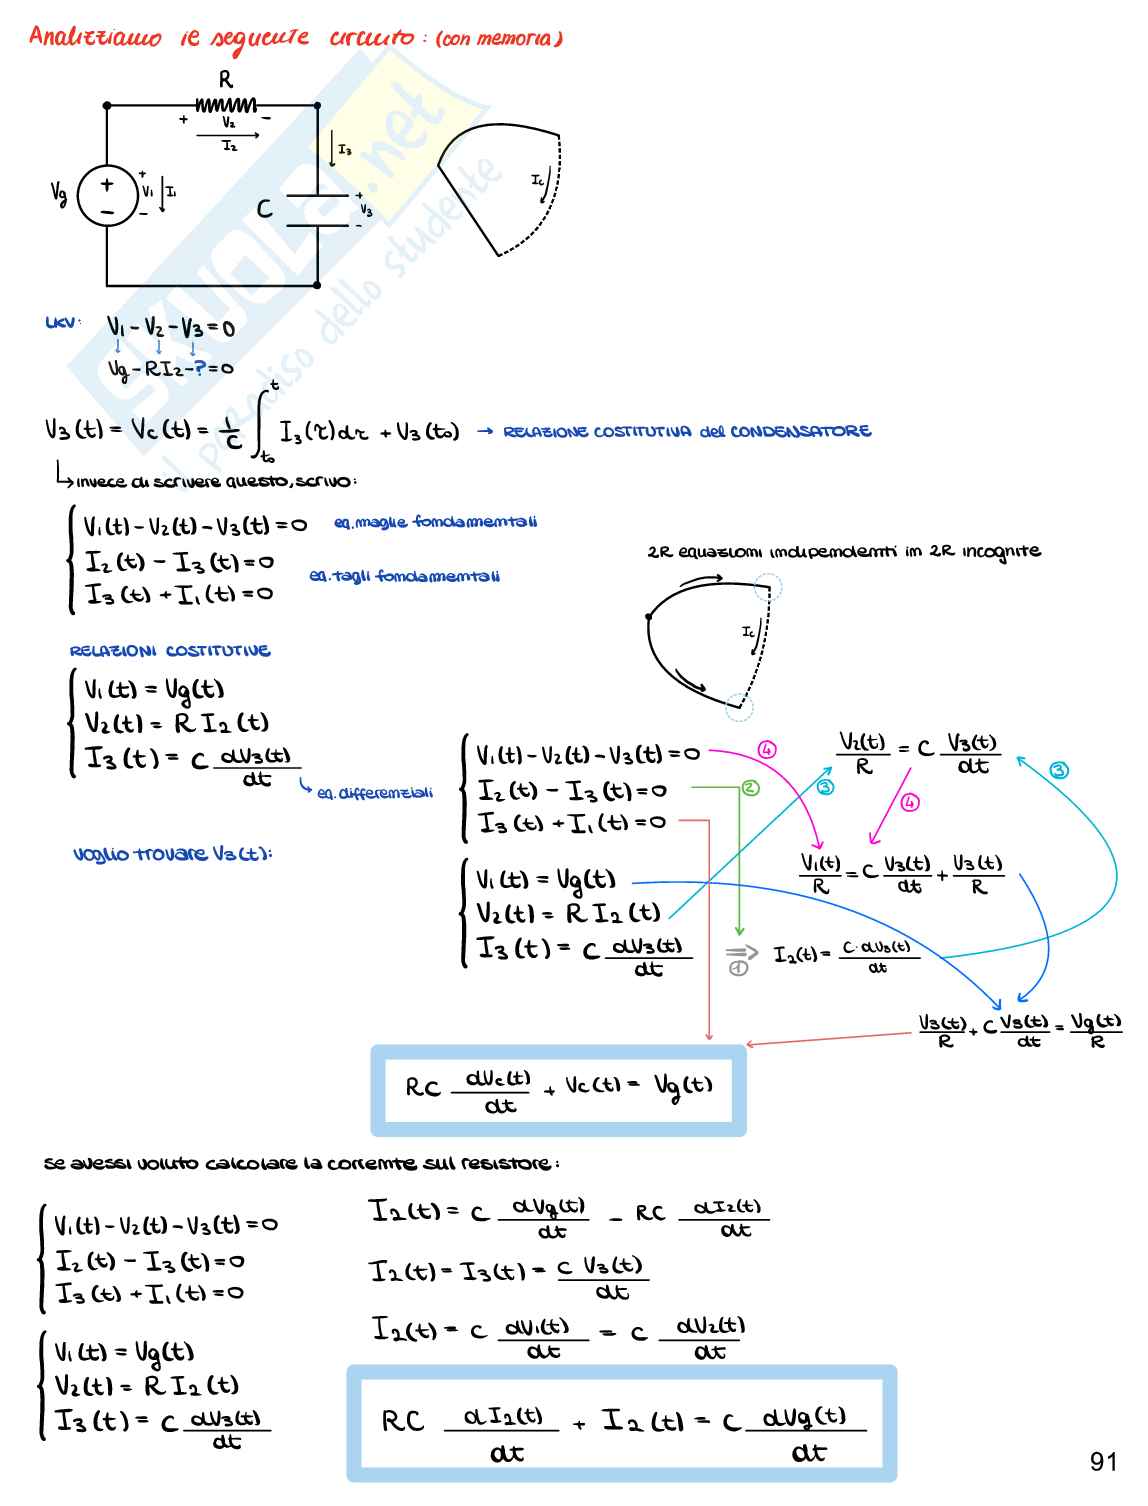 Analizziamo il seguente circuito: (con memoria)
R
+ V2 -
I2
I3
Vg + - + V1 - I1
C + V3 -
Ic
SKUOLA.net
il paradiso dello studente
LKV: V1 - V2 - V3 = 0
Vg - RI2 - ? = 0
V3(t) = Vc(t) = 1/C ∫ t0 t I3(τ)dτ + V3(t0) → RELAZIONE COSTITUTIVA del CONDENSATORE
↳ invece di scrivere questo, scrivo:
V1(t) - V2(t) - V3(t) = 0 eq. maglie fondamentali
I2(t) - I3(t) = 0
eq. tagli fondamentali
I3(t) + I1(t) = 0
2R equazioni indipendenti in 2R incognite
Ic
RELAZIONI COSTITUTIVE
V1(t) = Vg(t)
V2(t) = R I2(t)
I3(t) = C dV3(t)/dt
↳ eq. differenziali
voglio trovare V3(t):
V1(t) - V2(t) - V3(t) = 0
I2(t) - I3(t) = 0
I3(t) + I1(t) = 0
V1(t) = Vg(t)
V2(t) = R I2(t)
I3(t) = C dV3(t)/dt
④ ② ③ ④ ③
V2(t)/R = C V3(t)/dt
V1(t)/R = C V3(t)/dt + V3(t)/R
⇒ ① I2(t) = C·dV3(t)/dt
V3(t)/R + C V3(t)/dt = Vg(t)/R
RC dVc(t)/dt + Vc(t) = Vg(t)
se avessi voluto calcolare la corrente sul resistore:
V1(t) - V2(t) - V3(t) = 0
I2(t) - I3(t) = 0
I3(t) + I1(t) = 0
V1(t) = Vg(t)
V2(t) = R I2(t)
I3(t) = C dV3(t)/dt
I2(t) = C dVg(t)/dt - RC dI2(t)/dt
I2(t) = I3(t) = C V3(t)/dt
I2(t) = C dV1(t)/dt = C dV2(t)/dt
RC dI2(t)/dt + I2(t) = C dVg(t)/dt
91